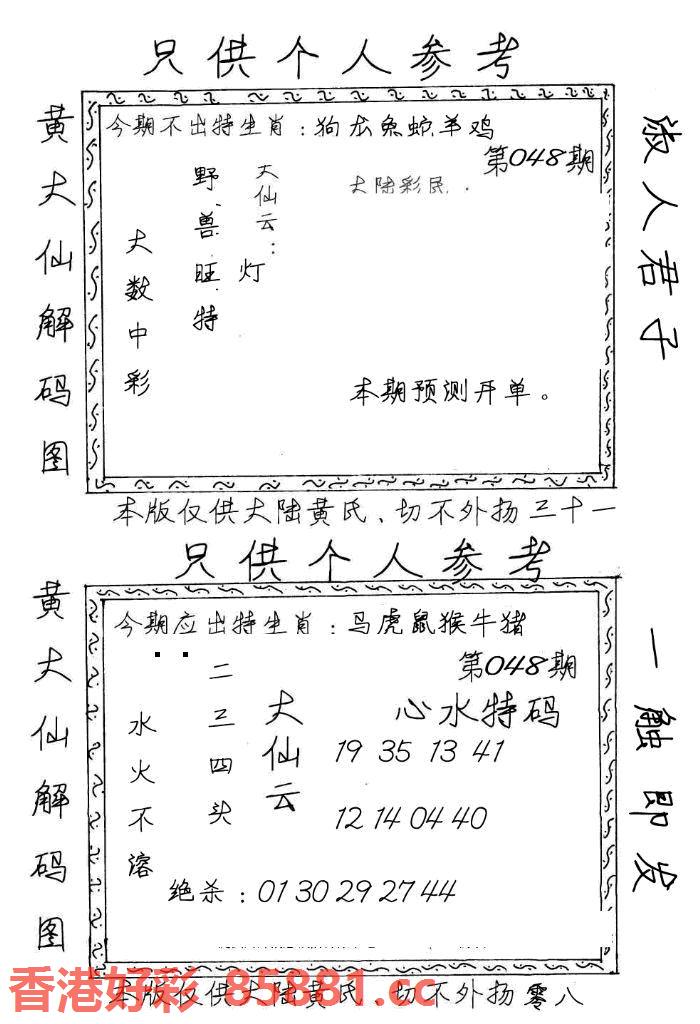 只供个人参考
黄大仙解码图
今期不出特生肖：狗龙兔蛇羊鸡
第048期
大仙云：
灯
野兽旺特
大数中彩
大陆彩民．
本期预测开单。
淑人君子
本版仅供大陆黄氏、切不外扬三十一
只供个人参考
黄大仙解码图
今期应出特生肖：马虎鼠猴牛猪
第048期
大仙云
二三四头
水火不溶
心水特码
19 35 13 41
12 14 04 40
绝杀：01 30 29 27 44
一触即发
本版仅供大陆黄氏、切不外扬零八
香港好彩 85881.cc